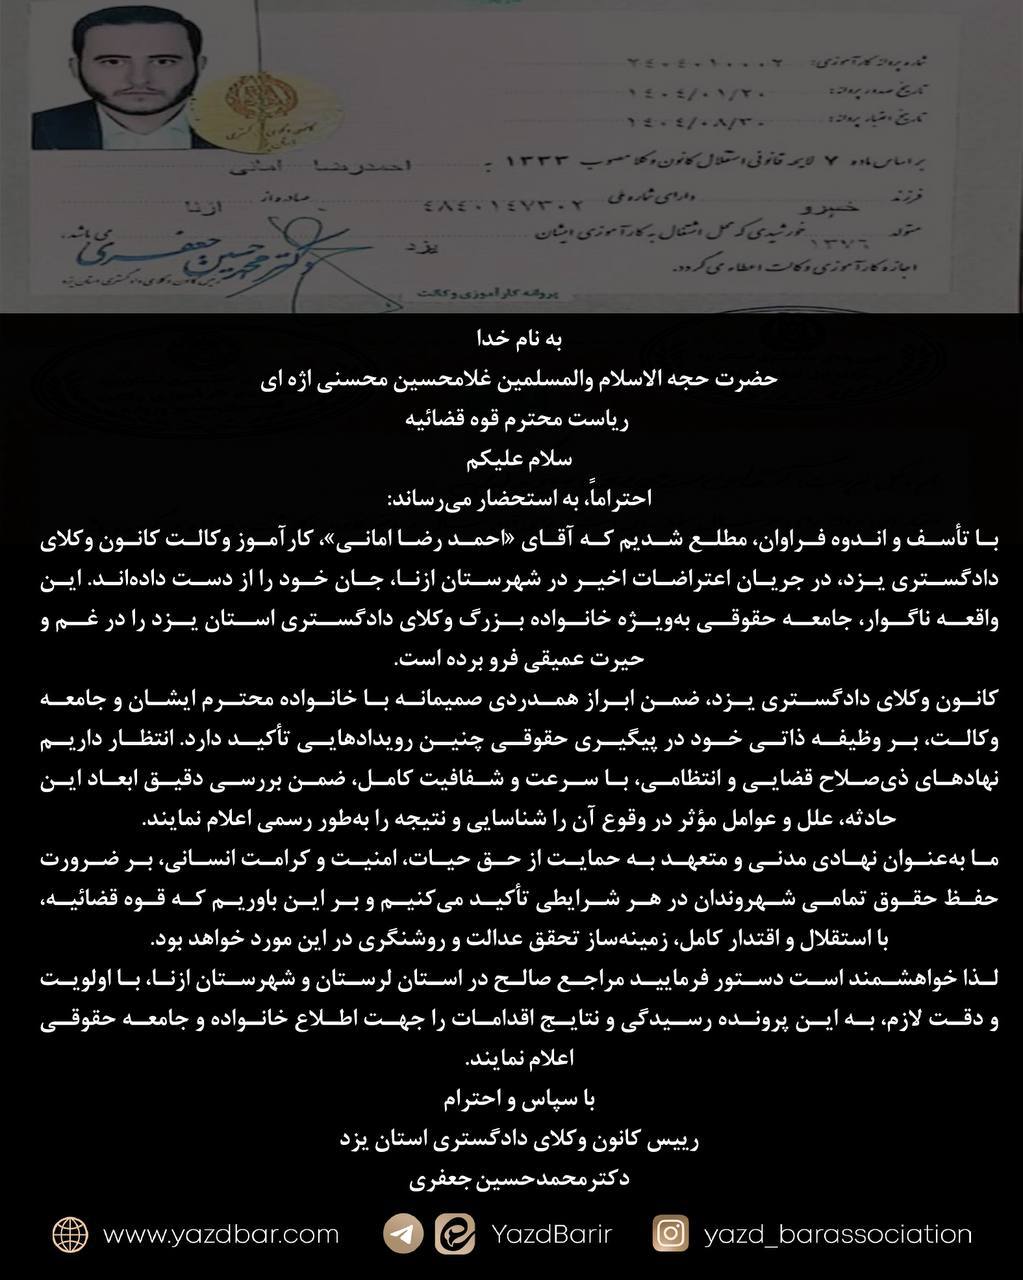 شماره پروانه کارآموزی: ۲۴۰۴۰۱۰۰۰۲
تاریخ صدور پروانه: ۱۴۰۴/۰۱/۲۰
تاریخ اعتبار پروانه: ۱۴۰۴/۰۸/۳۰
بر اساس ماده ۷ لایحه قانونی استقلال کانون وکلا مصوب ۱۳۳۳ به احمدرضا امانی
فرزند خسرو دارای شماره ملی ۴۸۴۰۱۴۷۳۰۲ صادره از ازنا
متولد ۱۳۷۶ خورشیدی که محل اشتغال به کارآموزی ایشان یزد می باشد،
اجازه کارآموزی وکالت اعطاء می گردد.
دکتر محمدحسین جعفری
رئیس کانون وکلای دادگستری استان یزد
پروانه کارآموزی وکالت
به نام خدا
حضرت حجه الاسلام والمسلمین غلامحسین محسنی اژه ای
ریاست محترم قوه قضائیه
سلام علیکم
احتراماً، به استحضار می‌رساند:
با تأسف و اندوه فراوان، مطلع شدیم که آقای «احمد رضا امانی»، کارآموز وکالت کانون وکلای
دادگستری یزد، در جریان اعتراضات اخیر در شهرستان ازنا، جان خود را از دست داده‌اند. این
واقعه ناگوار، جامعه حقوقی به‌ویژه خانواده بزرگ وکلای دادگستری استان یزد را در غم و
حیرت عمیقی فرو برده است.
کانون وکلای دادگستری یزد، ضمن ابراز همدردی صمیمانه با خانواده محترم ایشان و جامعه
وکالت، بر وظیفه ذاتی خود در پیگیری حقوقی چنین رویدادهایی تأکید دارد. انتظار داریم
نهادهای ذی‌صلاح قضایی و انتظامی، با سرعت و شفافیت کامل، ضمن بررسی دقیق ابعاد این
حادثه، علل و عوامل مؤثر در وقوع آن را شناسایی و نتیجه را به‌طور رسمی اعلام نمایند.
ما به‌عنوان نهادی مدنی و متعهد به حمایت از حق حیات، امنیت و کرامت انسانی، بر ضرورت
حفظ حقوق تمامی شهروندان در هر شرایطی تأکید می‌کنیم و بر این باوریم که قوه قضائیه،
با استقلال و اقتدار کامل، زمینه‌ساز تحقق عدالت و روشنگری در این مورد خواهد بود.
لذا خواهشمند است دستور فرمایید مراجع صالح در استان لرستان و شهرستان ازنا، با اولویت
و دقت لازم، به این پرونده رسیدگی و نتایج اقدامات را جهت اطلاع خانواده و جامعه حقوقی
اعلام نمایند.
با سپاس و احترام
رییس کانون وکلای دادگستری استان یزد
دکترمحمدحسین جعفری
www.yazdbar.com YazdBarir yazd_barassociation